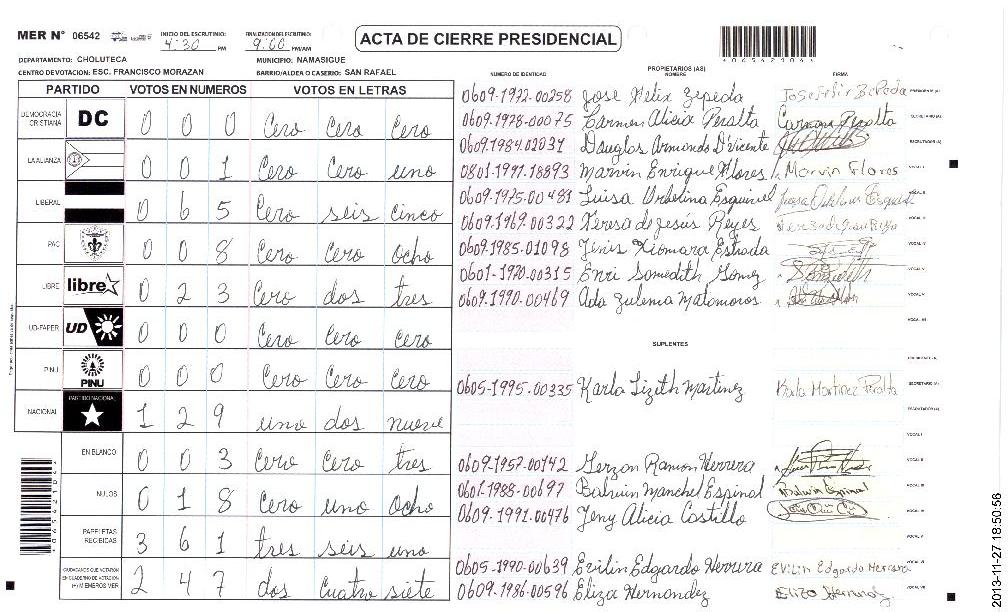 MER N° 06542
INICIO DEL ESCRUTINIO: 4:30 PM
FINALIZACION DEL ESCRUTINIO: 9:00 PM/AM
ACTA DE CIERRE PRESIDENCIAL
DEPARTAMENTO: CHOLUTECA MUNICIPIO: NAMASIGUE
CENTRO DE VOTACION: ESC. FRANCISCO MORAZAN BARRIO/ALDEA O CASERIO: SAN RAFAEL
PARTIDO VOTOS EN NUMEROS VOTOS EN LETRAS
DEMOCRACIA CRISTIANA DC 0 0 0 Cero Cero Cero
LA ALIANZA 0 0 1 Cero Cero uno
LIBERAL 0 6 5 Cero seis cinco
PAC 0 0 8 Cero Cero Ocho
LIBRE libre 0 2 3 Cero dos tres
UD-FAPER UD 0 0 0 Cero Cero Cero
PINU PINU 0 0 0 Cero Cero Cero
NACIONAL PARTIDO NACIONAL 1 2 9 uno dos nueve
EN BLANCO 0 0 3 Cero Cero tres
NULOS 0 1 8 Cero uno Ocho
PAPELETAS RECIBIDAS 3 6 1 tres seis uno
CIUDADANOS QUE VOTARON EN CUADERNO DE VOTACION (+) MIEMBROS MER 2 4 7 dos Cuatro siete
PROPIETARIOS (AS)
NUMERO DE IDENTIDAD NOMBRE FIRMA
0609-1972-00258 Jose Felix Zepeda PRESIDENTE (A)
0609-1928-00075 Carmen Alicia Peralta Carmen Peralta SECRETARIO (A)
0609.1984.02031 Douglas Armando D'vicente ESCRUTADOR (A)
0801-1997-18893 Marvin Enrique Flores Marvin Flores VOCAL I
0609-1975-00481 Luisa Urbelina Esquivel VOCAL II
0609-1969-00322 Teresa de jesús Reyes VOCAL III
0609-1985-01098 Jinis Xiomara Estrada VOCAL IV
0601-1970-00315 Enri Somedith Gomez VOCAL V
0609-1990-00469 Ada Zulema Matamoros VOCAL VI
VOCAL VII
SUPLENTES
PRESIDENTE (A)
0605-1995-00335 Karla Lizeth Martinez Karla Martinez Peralta SECRETARIO (A)
ESCRUTADOR (A)
VOCAL I
0609-1957-00142 Gerzon Ramon Herrera VOCAL II
0601-1988-00697 Balwin Manchel Espinal Balwin Espinal VOCAL III
0609-1991-00476 Jeny Alicia Castillo VOCAL IV
VOCAL V
0605-1990-00639 Evilin Edgardo Herrera Evilin Edgardo Herrera VOCAL VI
0609-1986-00596 Eliza Hernandez VOCAL VII
2013-11-27 18:50:56